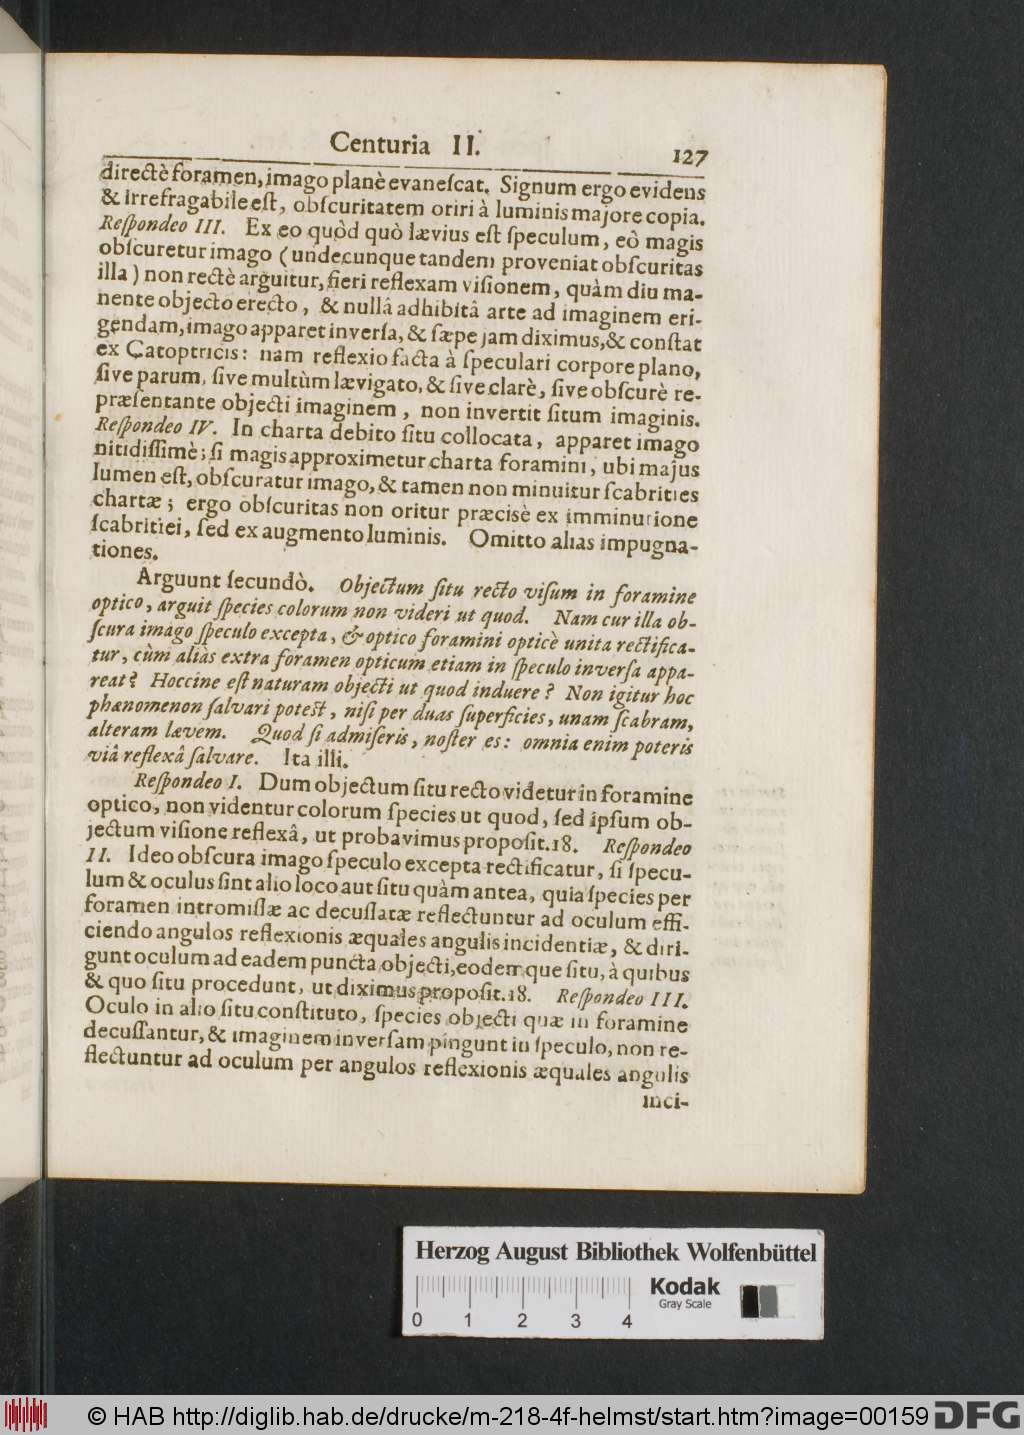 Centuria II. 127
directè foramen, imago planè evaneſcat. Signum ergo evidens
& irrefragabile eſt, obſcuritatem oriri à luminis majore copia.
Reſpondeo III. Ex eo quòd quò lævius eſt ſpeculum, eò magis
obſcuretur imago (undecunque tandem proveniat obſcuritas
illa) non rectè arguitur, fieri reflexam viſionem, quàm diu ma-
nente objecto erecto, & nullâ adhibitâ arte ad imaginem eri-
gendam, imago apparet inverſa, & ſæpe jam diximus, & conſtat
ex Catoptricis: nam reflexio facta à ſpeculari corpore plano,
ſive parum, ſive multùm lævigato, & ſive clarè, ſive obſcurè re-
præſentante objecti imaginem, non invertit ſitum imaginis.
Reſpondeo IV. In charta debito ſitu collocata, apparet imago
nitidiſſimè; ſi magis approximetur charta foramini, ubi majus
lumen eſt, obſcuratur imago, & tamen non minuitur ſcabrities
chartæ; ergo obſcuritas non oritur præcisè ex imminutione
ſcabritiei, ſed ex augmento luminis. Omitto alias impugna-
tiones.
Arguunt ſecundò. Objectum ſitu recto viſum in foramine
optico, arguit ſpecies colorum non videri ut quod. Nam cur illa ob-
ſcura imago ſpeculo excepta, & optico foramini opticè unita rectifica-
tur, cùm aliàs extra foramen opticum etiam in ſpeculo inverſa appa-
reat? Hoccine eſt naturam objecti ut quod induere? Non igitur hoc
phænomenon ſalvari poteſt, niſi per duas ſuperficies, unam ſcabram,
alteram lævem. Quod ſi admiſeris, noſter es: omnia enim poteris
viâ reflexâ ſalvare. Ita illi.
Reſpondeo I. Dum objectum ſitu recto videtur in foramine
optico, non videntur colorum ſpecies ut quod, ſed ipſum ob-
jectum viſione reflexâ, ut probavimus propoſit. 18. Reſpondeo
II. Ideo obſcura imago ſpeculo excepta rectificatur, ſi ſpecu-
lum & oculus ſint alio loco aut ſitu quàm antea, quia ſpecies per
foramen intromiſſæ ac decuſſatæ reflectuntur ad oculum effi-
ciendo angulos reflexionis æquales angulis incidentiæ, & diri-
gunt oculum ad eadem puncta objecti, eodemque ſitu, à quibus
& quo ſitu procedunt, ut diximus propoſit. 18. Reſpondeo III.
Oculo in alio ſitu conſtituto, ſpecies objecti quæ in foramine
decuſſantur, & imaginem inverſam pingunt in ſpeculo, non re-
flectuntur ad oculum per angulos reflexionis æquales angulis
inci-
Herzog August Bibliothek Wolfenbüttel
Kodak
Gray Scale
0 1 2 3 4
© HAB http://diglib.hab.de/drucke/m-218-4f-helmst/start.htm?image=00159
DFG